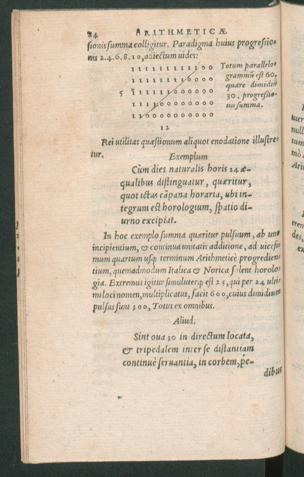 24 ARITHMETICÆ
sionis summa colligitur. Paradigma huius progressio-
nis 2.4.6.8.10, adiectum uides:
1 1 1 1 1 1 1 1 1 1 0 0 Totum parallelo-
1 1 1 1 1 1 1 1 0 0 0 0 grammũ est 60,
5 1 1 1 1 1 1 0 0 0 0 0 0 quare dimidiũ
1 1 1 1 0 0 0 0 0 0 0 0 30, progressio-
1 1 0 0 0 0 0 0 0 0 0 0 nis summa.
12
Rei utilitas quæstionum aliquot enodatione illustre-
tur.
Exemplum
Cùm dies naturalis horis 24 æ-
qualibus distinguatur, quæritur,
quot ictus cãpana horaria, ubi in-
tegrum est horologium, spatio di-
urno excipiat.
In hoc exemplo summa quæritur pulsuum, ab uno
incipientium, & continua unitatis additione, ad uicesi-
mum quartum usq; terminum Arithmeticè progredien-
tium, quemadmodum Italica & Norica solent horolo-
gia. Extremus igitur simul uterq; est 25, qui per 24 ulti-
mi loci nomen, multiplicatus, facit 600, cuius dimidium
pulsus sunt 300, Totus ex omnibus.
Aliud.
Sint oua 30 in directum locata,
& tripedalem inter se distantiam
continuè seruantia, in corbem, pe-
dibus